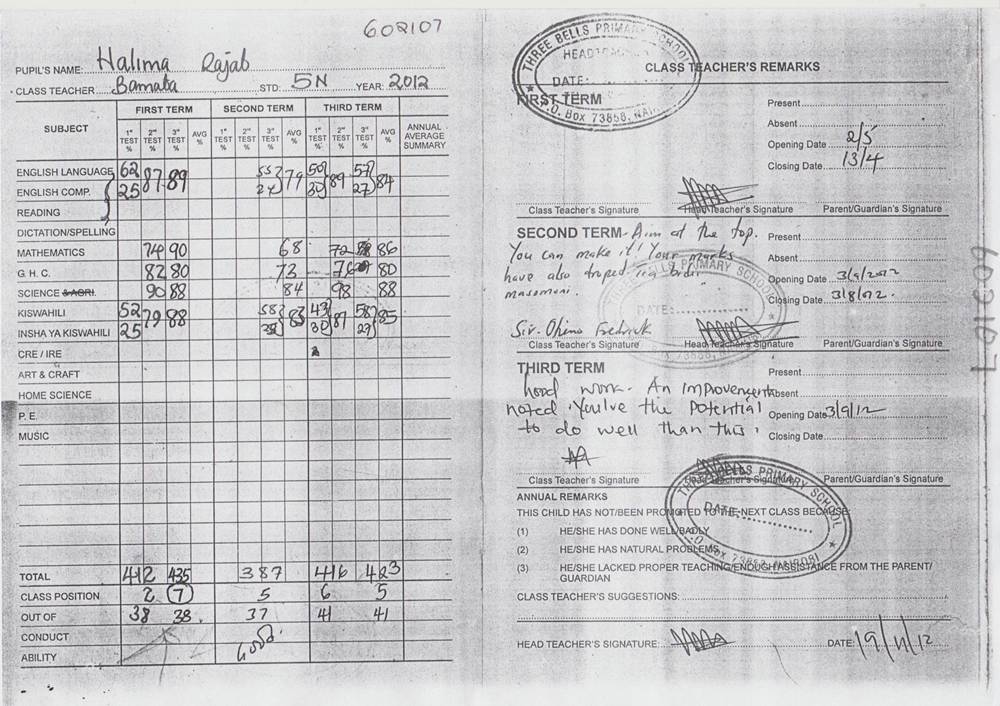 602107
PUPIL'S NAME: Halima Rajab
CLASS TEACHER Bamata STD: 5N YEAR: 2012
SUBJECT FIRST TERM SECOND TERM THIRD TERM ANNUAL AVERAGE SUMMARY
1st TEST % 2nd TEST % 3rd TEST % AVG % 1st TEST % 2nd TEST % 3rd TEST % AVG % 1st TEST % 2nd TEST % 3rd TEST % AVG %
ENGLISH LANGUAGE 62 87 89 55 79 50 89 57 84
ENGLISH COMP. 25 24 30 27
READING
DICTATION/SPELLING
MATHEMATICS 74 90 68 72 86
G. H. C. 82 80 73 76 80
SCIENCE & AGRI. 90 88 84 98 88
KISWAHILI 52 79 88 58 83 43 81 58 85
INSHA YA KISWAHILI 25 30 29
CRE / IRE
ART & CRAFT
HOME SCIENCE
P. E.
MUSIC
TOTAL 412 435 387 416 423
CLASS POSITION 2 7 5 6 5
OUT OF 38 38. 37 41 41
CONDUCT
ABILITY Good.
THREE BELLS PRIMARY SCHOOL
HEAD
DATE:
P.O. Box 73858, NAI
CLASS TEACHER'S REMARKS
FIRST TERM
Present
Absent
Opening Date 2/5
Closing Date 13/4
Class Teacher's Signature Head Teacher's Signature Parent/Guardian's Signature
SECOND TERM - Aim at the top.
You can make it! Your marks
have also droped
masomoni.
Present
Absent
Opening Date 3/9/2012
Closing Date 3/8/012.
THREE BELLS PRIMARY SCHOOL
DATE:
73858
Sir. Ohino Fredrick
Class Teacher's Signature Head Teacher's Signature Parent/Guardian's Signature
THIRD TERM
Good work. An improvement
noted. You've the potential
to do well than this.
Present
Absent
Opening Date 3/9/12
Closing Date
Class Teacher's Signature Head Teacher's Signature Parent/Guardian's Signature
THREE BELLS PRIMARY SCHOOL
DATE:
P.O. Box 73858, NAIROBI
ANNUAL REMARKS
THIS CHILD HAS NOT/BEEN PROMOTED TO THE NEXT CLASS BECAUSE:
(1) HE/SHE HAS DONE WELL/BADLY
(2) HE/SHE HAS NATURAL PROBLEMS
(3) HE/SHE LACKED PROPER TEACHING/ENOUGH ASSISTANCE FROM THE PARENT/
GUARDIAN
CLASS TEACHER'S SUGGESTIONS:
HEAD TEACHER'S SIGNATURE: DATE: 19/11/12